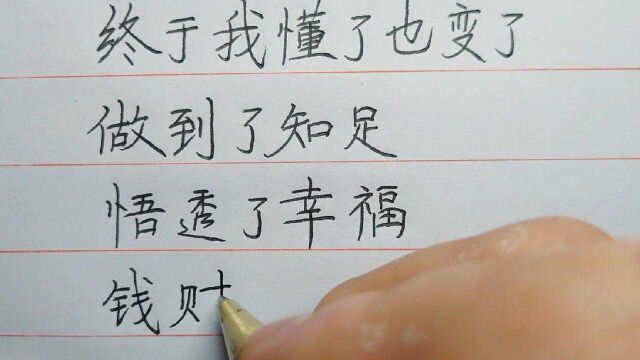 终于我懂了也变了
做到了知足
悟透了幸福
钱财